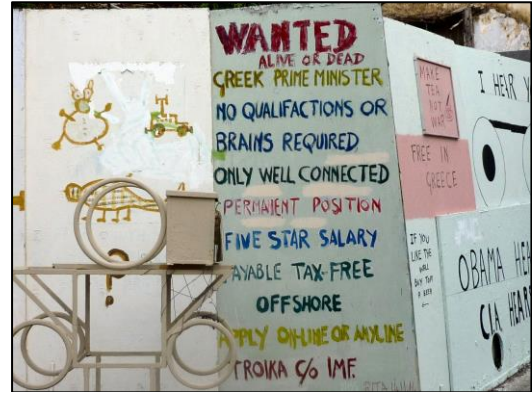 WANTED
ALIVE OR DEAD
GREEK PRIME MINISTER
NO QUALIFACTIONS OR
BRAINS REQUIRED
ONLY WELL CONNECTED
PERMANENT POSITION
FIVE STAR SALARY
PAYABLE TAX-FREE
OFFSHORE
APPLY ON-LINE OR ANYLINE
TROIKA C/O IMF.
MAKE
TEA
NOT
WAR
FREE IN
GREECE
IF YOU
LIKE THE
WALL
BUY
A BEER
←
I HEAR
OBAMA
CIA HEARS